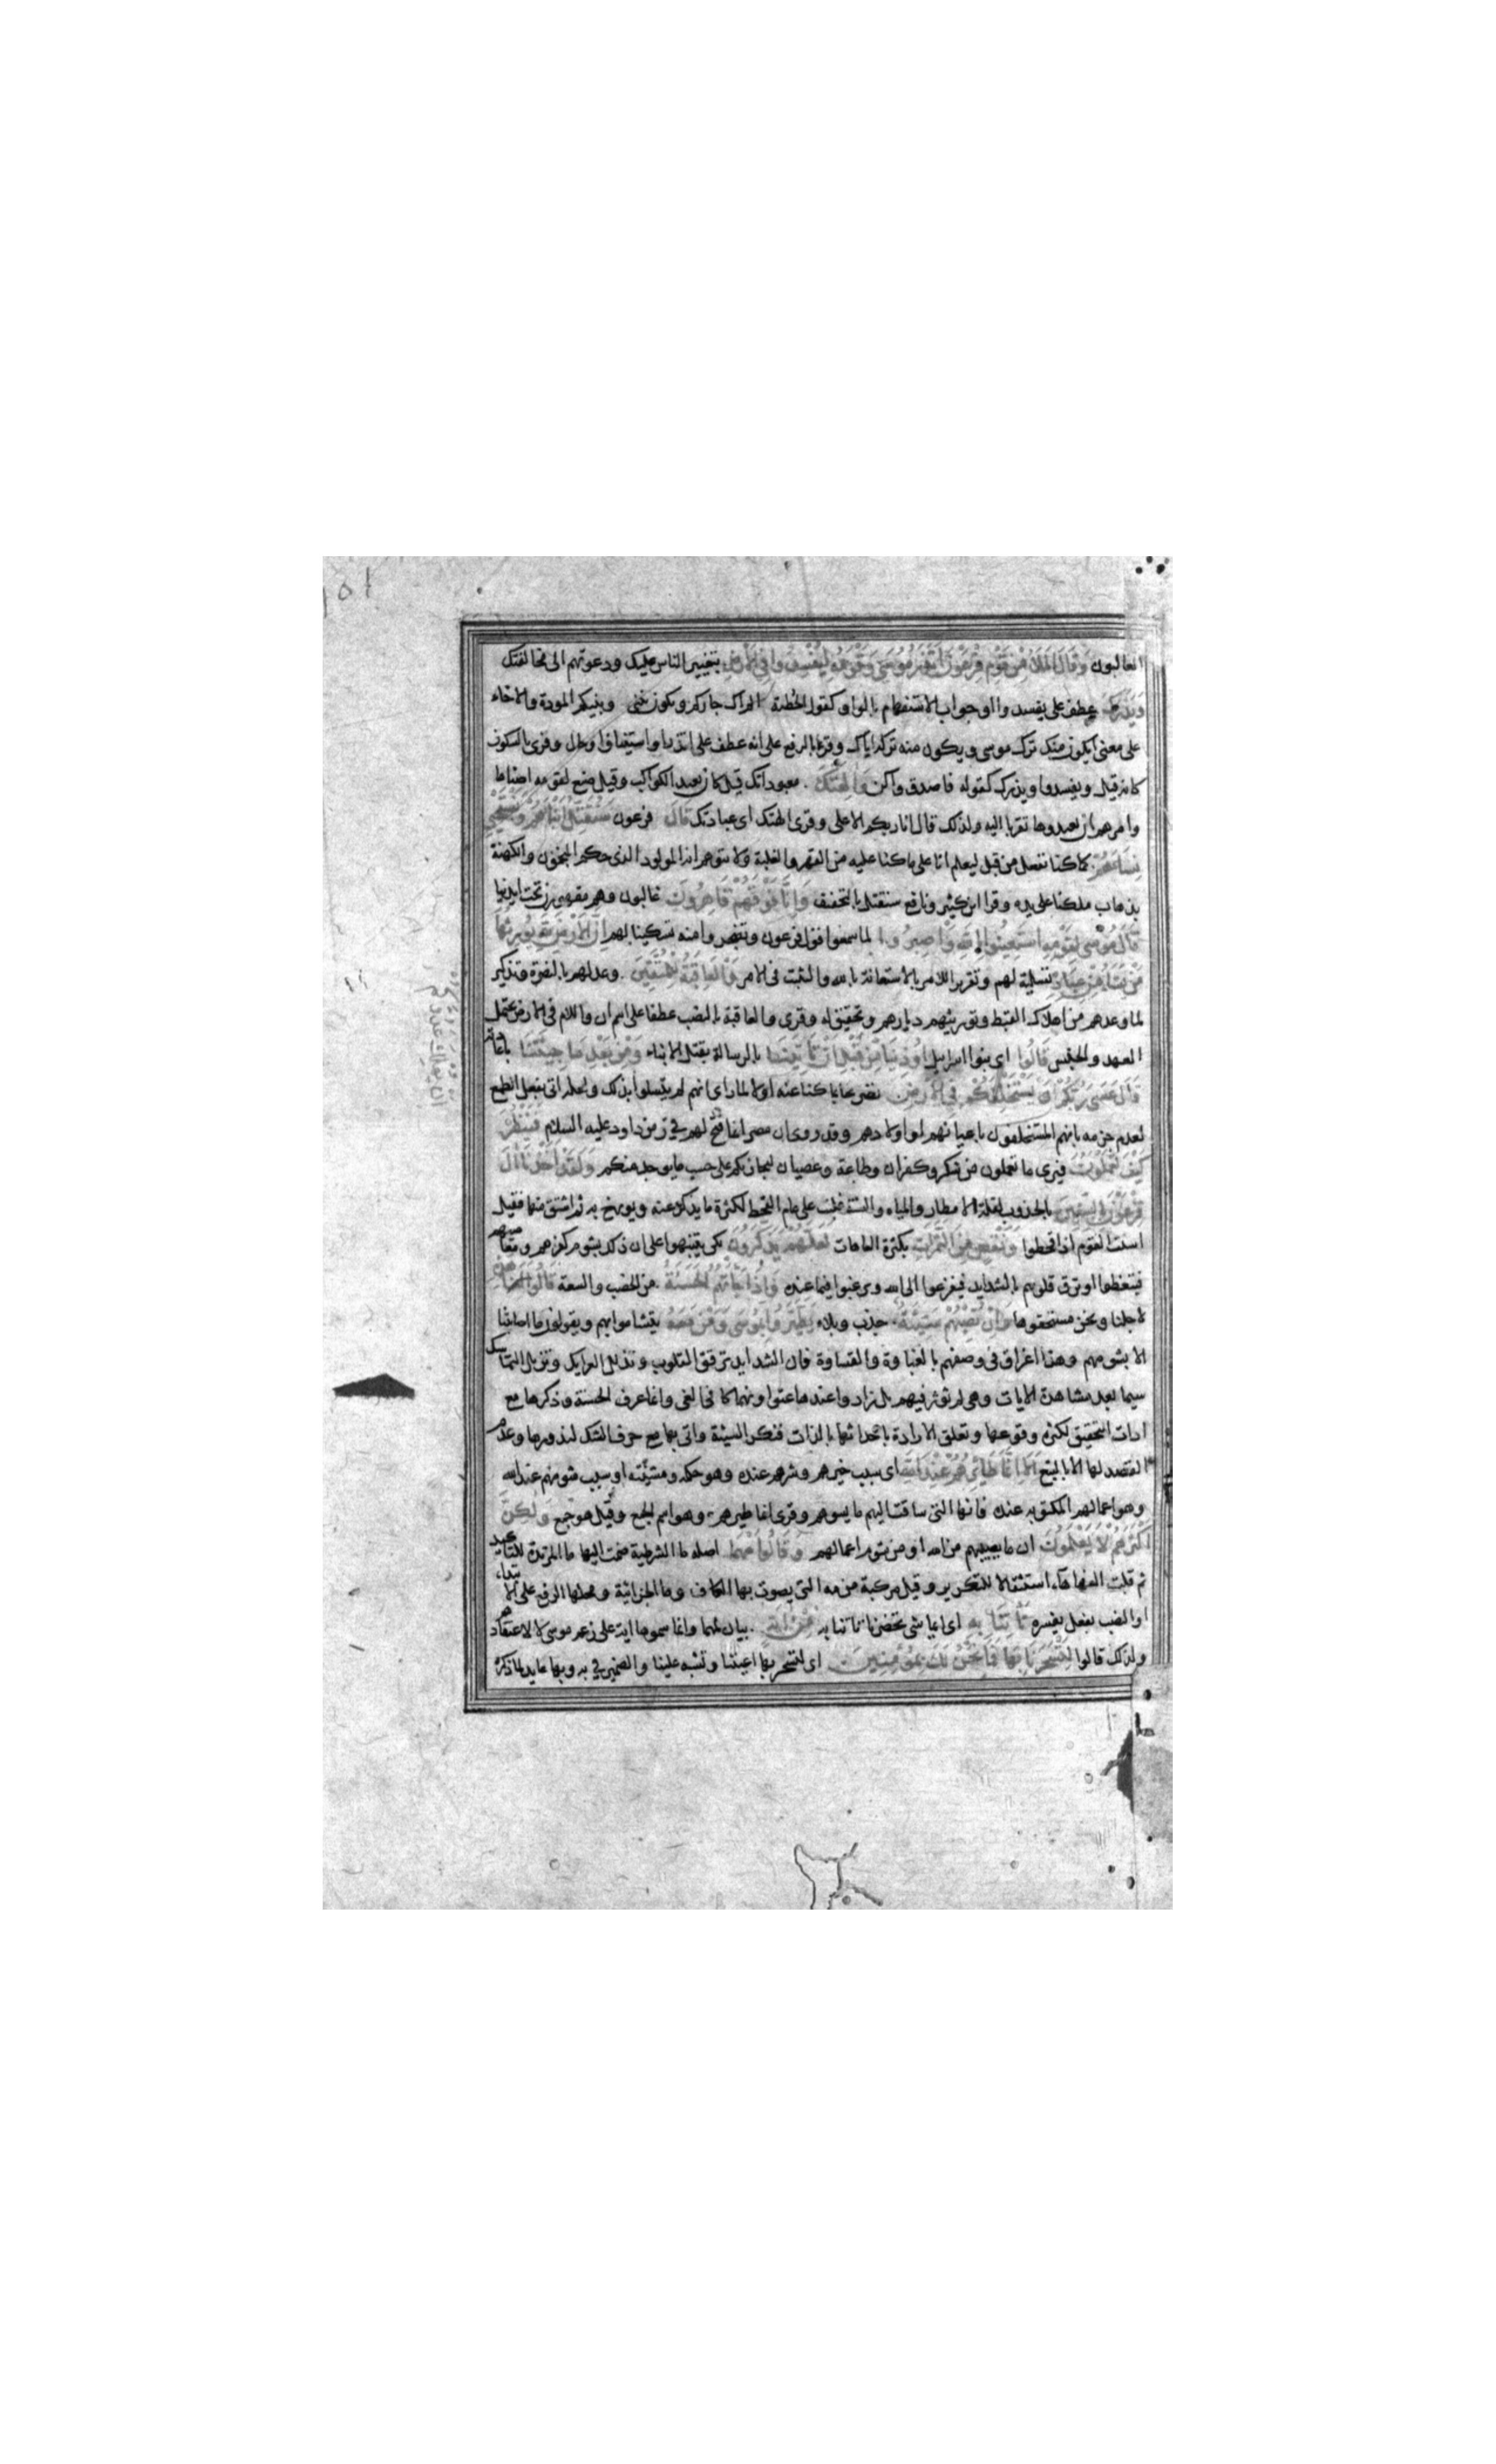 الغالبون وَقَالَ الْمَلَأُ مِنْ قَوْمِ فِرْعَوْنَ اَتَذَرُ مُوسَى وَقَوْمَهُ لِيُفْسِدُوا فِي الْاَرْضِ بتغيير الناس عليك ودعوتهم الى مخالفتك
وَيَذَرَكَ عطف على يفسدوا او جواب الاستفهام بالواو كقول الحطئة الم اك جاركم ويكون بيني وبينكم المودة والاخاء
على معنى ايكون منك ترك موسى ويكون منه تركه اياك وقرئ بالرفع على انه عطف على اتذر او استيناف او حال وقرئ بالسكون
كانه قيل ويفسدوا ويذرك كقوله فاصدق واكن وَآلِهَتَكَ معبوداتك قيل كان يعبد الكواكب وقيل صنع لقومه اصناما
وامرهم ان يعبدوها تقربا اليه ولذلك قال انا ربكم الاعلى وقرئ الهتك اى عبادتك قَالَ فرعون سَنُقَتِّلُ اَبْنَاءَهُمْ وَنَسْتَحْيِي
نِسَاءَهُمْ كما كنا نفعل من قبل ليعلم انا على ما كنا عليه من القهر والغلبة ولا يتوهم انه المولود الذى حكم المنجمون والكهنة
بذهاب ملكنا على يده وقرا ابن كثير ونافع سنقتل بالتخفيف وَاِنَّا فَوْقَهُمْ قَاهِرُونَ غالبون وهم مقهورون تحت ايدينا
قَالَ مُوسَى لِقَوْمِهِ اسْتَعِينُوا بِاللَّهِ وَاصْبِرُوا لما سمعوا قول فرعون وتضجروا منه تسكينا لهم اِنَّ الْاَرْضَ لِلَّهِ يُورِثُهَا
مَنْ يَشَاءُ مِنْ عِبَادِهِ تسلية لهم وتقرير للامر بالاستعانة بالله والتثبت فى الامر وَالْعَاقِبَةُ لِلْمُتَّقِينَ وعد لهم بالنصرة وتذكير
لما وعدهم من اهلاك القبط وتوريثهم ديارهم وتحقيق له وقرئ والعاقبة بالنصب عطفا على اسم ان واللام فى الارض يحتمل
العهد والجنس قَالُوا اى بنوا اسرايل اُوذِينَا مِنْ قَبْلِ اَنْ تَأْتِيَنَا بالرسالة بقتل الابناء وَمِنْ بَعْدِ مَا جِئْتَنَا باعادته
قَالَ عَسَى رَبُّكُمْ اَنْ يُهْلِكَ عَدُوَّكُمْ وَيَسْتَخْلِفَكُمْ فِي الْاَرْضِ تصريحا بما كنا عنه اولا لما راى انهم لم يتسلوا بذلك ولعله اتى بفعل الطمع
لعدم جزمه بانهم المستخلفون باعيانهم او اولادهم وقد روى ان مصر انما فتح لهم فى زمن داود عليه السلام فَيَنْظُرَ
كَيْفَ تَعْمَلُونَ فيرى ما تعملون من شكر وكفران وطاعة وعصيان ليجازيكم على حسب ما يوجد منكم وَلَقَدْ اَخَذْنَا آلَ
فِرْعَوْنَ بِالسِّنِينَ بالجدوب لقلة الامطار والمياه والسنة غلبت على عام القحط لكثرة ما يذكر عنه ويورخ به ثم اشتق منها فقيل
اسنت القوم اذا قحطوا وَنَقْصٍ مِنَ الثَّمَرَاتِ بكثرة العاهات لَعَلَّهُمْ يَذَّكَّرُونَ لكى يتنبهوا على ان ذلك بشوم كفرهم ومعاصيهم
فيتعظوا او ترق قلوبهم بالشدايد فيفزعوا الى الله ويرغبوا فيما عنده فَاِذَا جَاءَتْهُمُ الْحَسَنَةُ من الخصب والسعة قَالُوا لَنَا هَذِهِ
لاجلنا ونحن مستحقوها وَاِنْ تُصِبْهُمْ سَيِّئَةٌ جدب وبلاء يَطَّيَّرُوا بِمُوسَى وَمَنْ مَعَهُ يتشاموا بهم ويقولون ما اصابتنا
الا بشومهم وهذا اغراق فى وصفهم بالغباوة والقساوة فان الشدايد ترقق القلوب وتذلل العرايك وتزيل التماسك
سيما بعد مشاهدة الايات وهى لم توثر فيهم بل زادوا عندها عتوا وانهماكا فى الغى وانما عرف الحسنة وذكرها مع
ادات التحقيق لكثرة وقوعها وتعلق الارادة باحداثها بالذات فنكر السيئة واتى بها مع حرف الشك لندورها وعدم
القصد لها الا بالتبع اَلَا اِنَّمَا طَائِرُهُمْ عِنْدَ اللَّهِ اى سبب خيرهم وشرهم عنده وهو حكمه ومشيئته او سبب شومهم عند الله
وهو اعمالهم المكتوبة عنده فانها التى ساقت اليهم ما يسوهم وقرئ انما طيرهم وهو اسم الجمع وقيل هو جمع وَلَكِنَّ
اَكْثَرَهُمْ لَا يَعْلَمُونَ ان ما يصيبهم من الله او من شوم اعمالهم وَقَالُوا مَهْمَا اصله ما الشرطية ضمت اليها ما المزيدة للتاكيد
ثم قلبت الفها هاء استثقالا للتكرير وقيل مركبة من مه التى يصوت بها الكاف وما الجزائية ومحلها الرفع على الابتداء
او النصب بفعل يفسره تَأْتِنَا بِهِ اى ايما شى تحضرنا تاتنا به مِنْ آيَةٍ بيان لمهما وانما سموها اية على زعم موسى لا لاعتقادهم
ولذلك قالوا لِتَسْحَرَنَا بِهَا فَمَا نَحْنُ لَكَ بِمُؤْمِنِينَ اى لتسحر بها اعيننا وتشبه علينا والضمير فى به وبها عايد لما ذكره
ان يهلك عدوكم